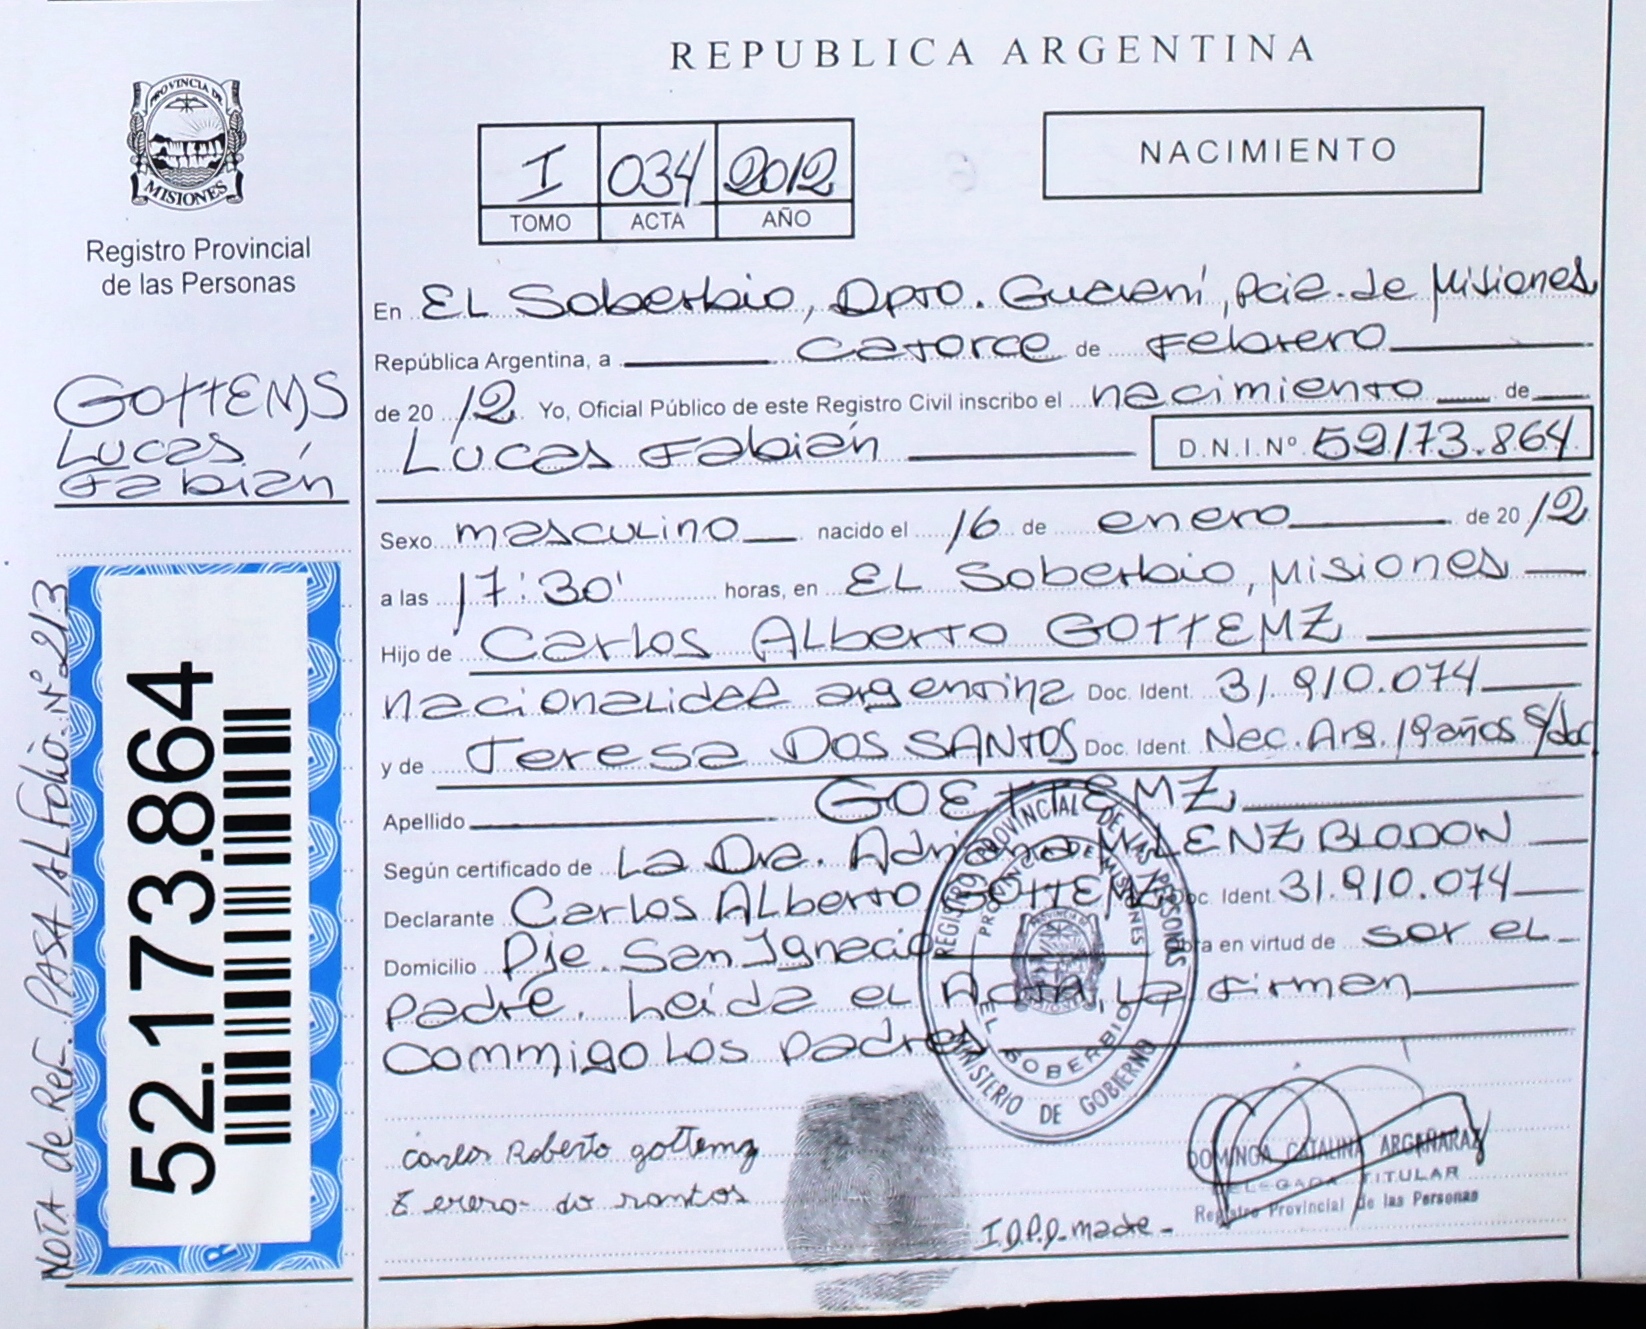 REPUBLICA ARGENTINA
PROVINCIA DE
MISIONES
Registro Provincial
de las Personas
I 034 2012
TOMO ACTA AÑO
NACIMIENTO
GOTTEMS
LUCAS
Fabián
NOTA de Ref. PASA AL Folio. Nº 213
52.173.864
En EL Soberbio, Dpto. Guaraní, Pcia. de Misiones
República Argentina, a catorce de Febrero
de 2012 Yo, Oficial Público de este Registro Civil inscribo el nacimiento de
Lucas Fabián D.N.I.Nº 52173.864
Sexo masculino nacido el 16 de enero de 2012
a las 17:30' horas, en EL Soberbio, Misiones
Hijo de Carlos ALberto GOTTEMZ
nacionalidad argentina Doc. Ident. 31.910.074
y de Teresa DOS SANTOS Doc. Ident. Nac. Arg. 19 años s/doc
Apellido GOETTEMZ
Según certificado de La Dra. Adriana M. LENZ BLODON
Declarante Carlos ALberto GOTTEMZ Doc. Ident. 31.910.074
Domicilio Pje. San Ignacio Obra en virtud de ser el
padre. Leída el Acta, La firman
commigo Los padres
REGISTRO PROVINCIAL DE LAS PERSONAS
PROVINCIA DE MISIONES
EL SOBERBIO
MINISTERIO DE GOBIERNO
Carlos Roberto gottemz
do santos
I.D.P.D. madre -
DOMINGA CATALINA ARGAÑARAZ
DELEGADA TITULAR
Registro Provincial de las Personas